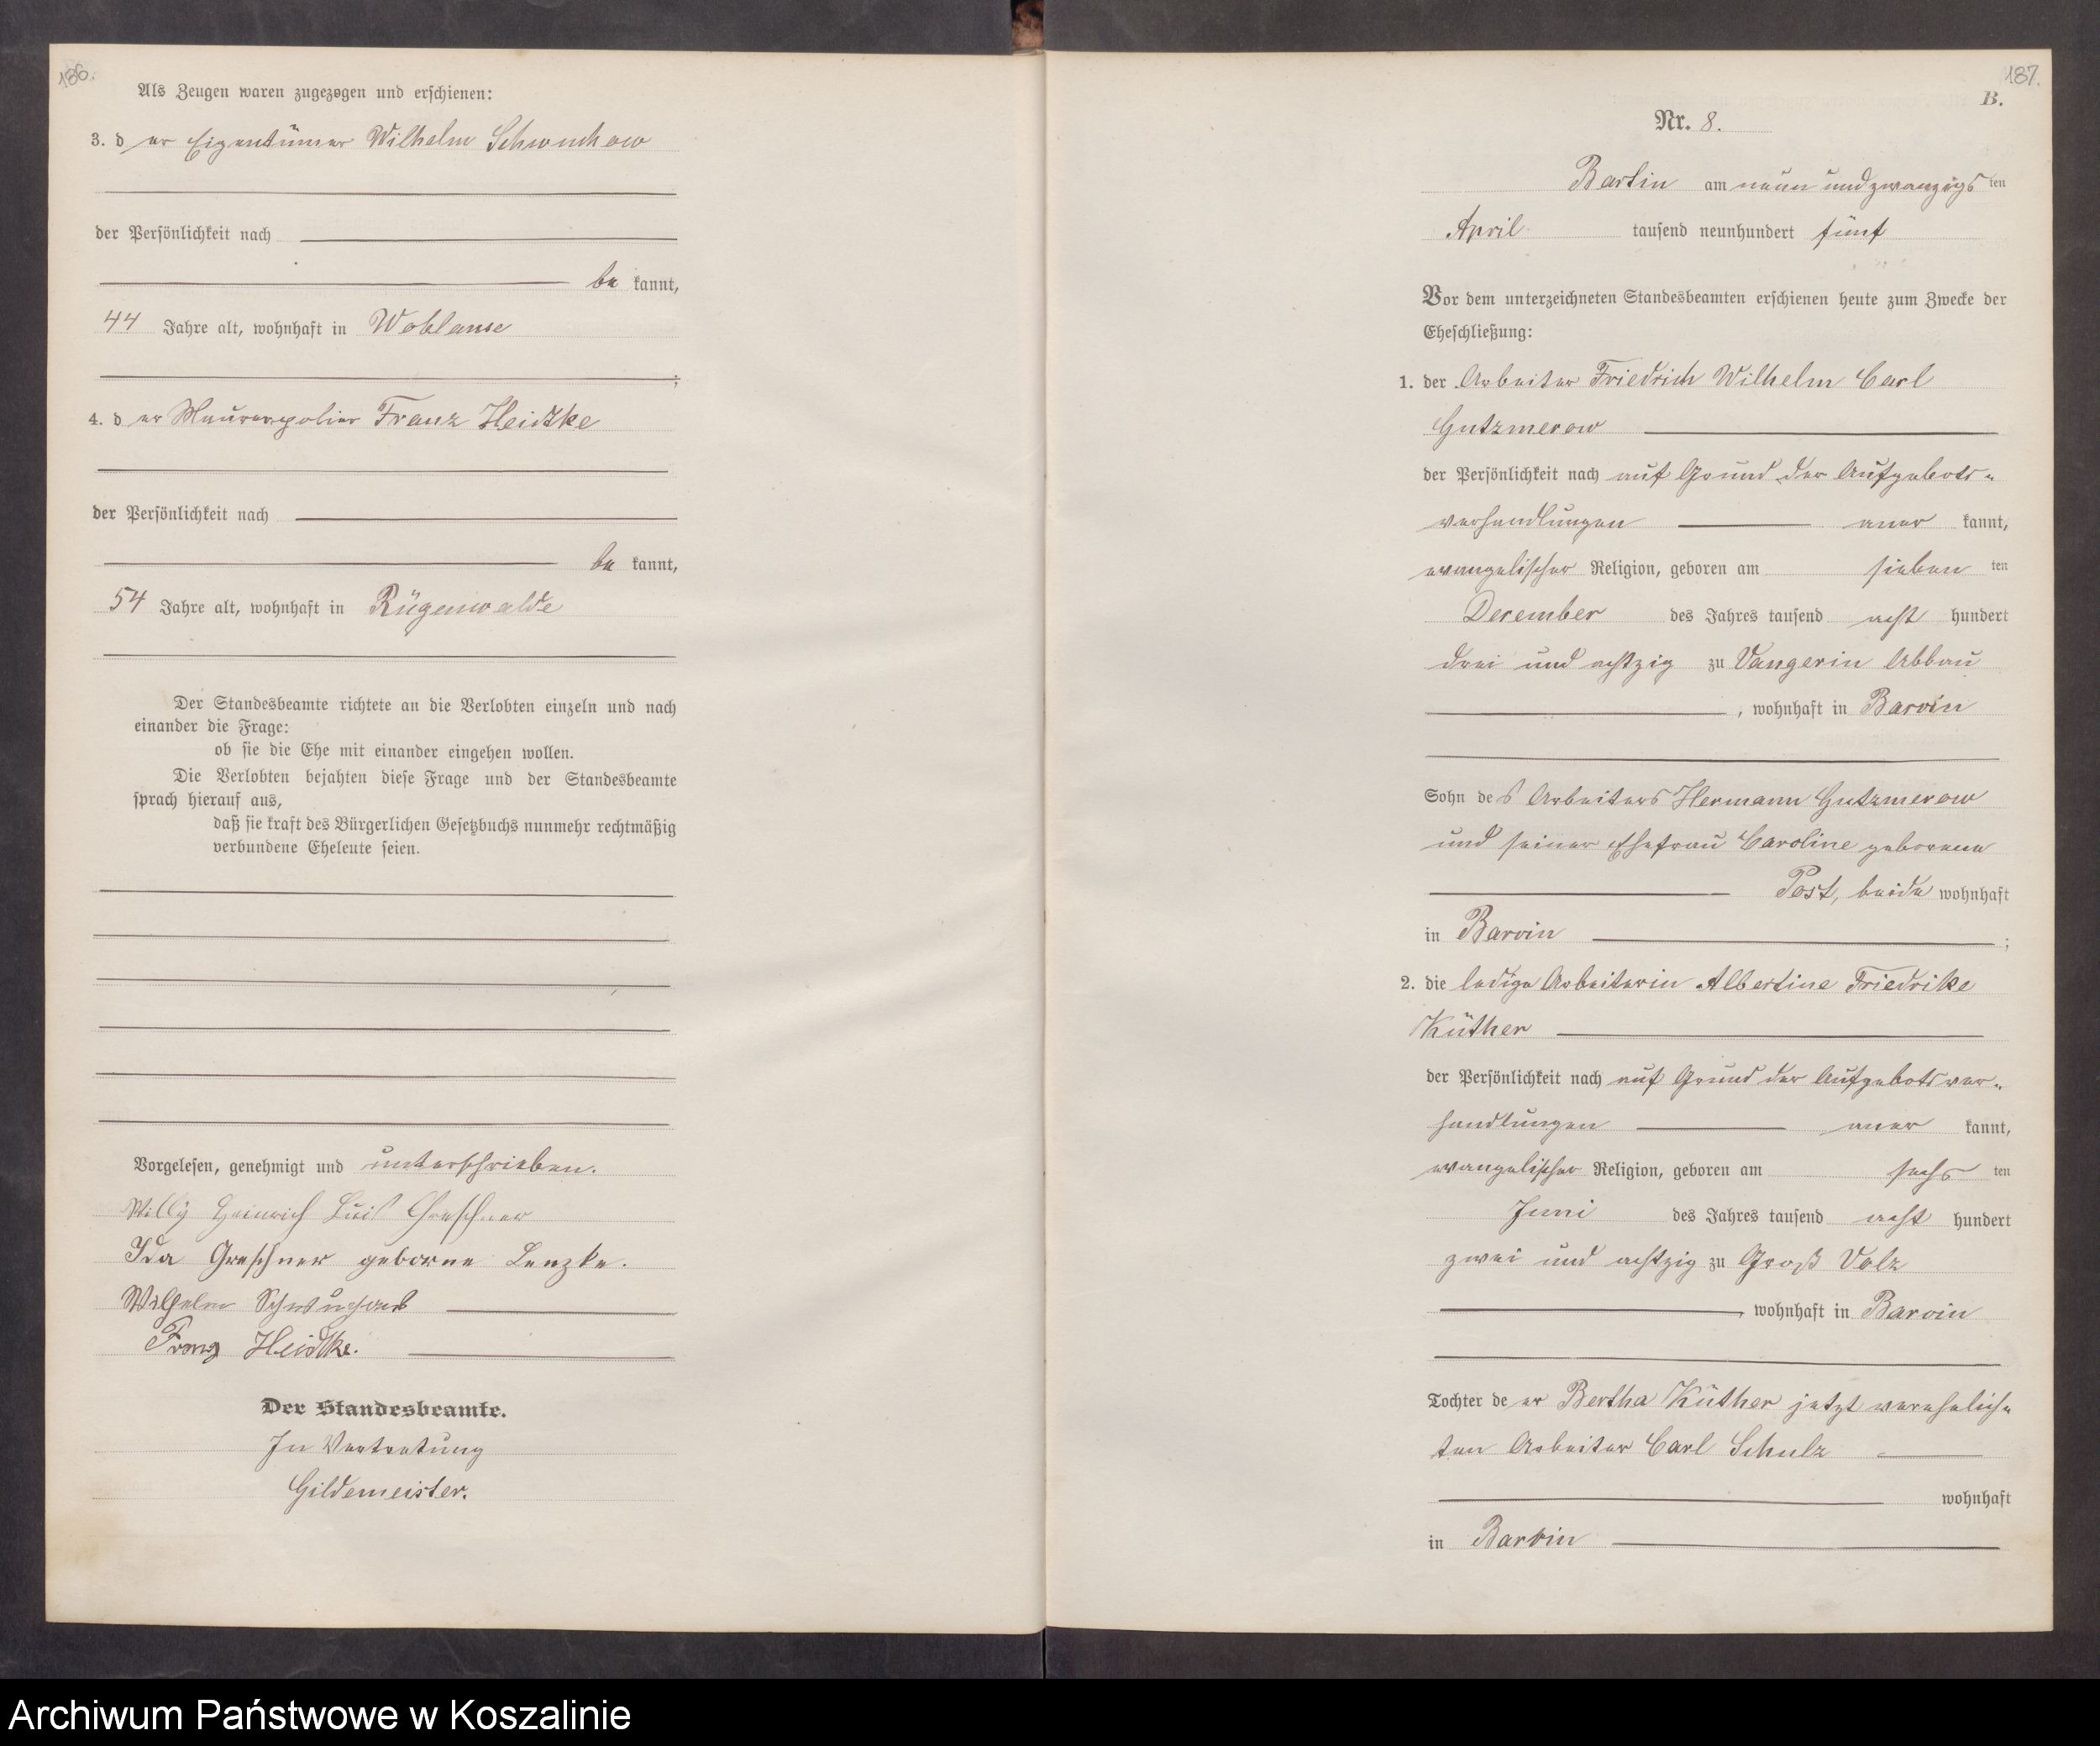 186.
Als Zeugen waren zugezogen und erschienen:
3. d er Eigentümer Wilhelm Schwuchow
der Persönlichkeit nach
be kannt,
44 Jahre alt, wohnhaft in Woblanse
;
4. d er Maurerpolier Franz Heidtke
der Persönlichkeit nach
be kannt,
54 Jahre alt, wohnhaft in Rügenwalde
Der Standesbeamte richtete an die Verlobten einzeln und nach
einander die Frage:
ob sie die Ehe mit einander eingehen wollen.
Die Verlobten bejahten diese Frage und der Standesbeamte
sprach hierauf aus,
daß sie kraft des Bürgerlichen Gesetzbuchs nunmehr rechtmäßig
verbundene Eheleute seien.
Vorgelesen, genehmigt und unterschrieben.
Willy Heinrich Greschner
Ida Greschner geborne Lenzke.
Wilhelm Schwuchow
Franz Heidtke.
Der Standesbeamte.
In Vertretung
Gildemeister.
187.
B.
Nr. 8.
Bartin am neun und zwanzigs ten
April tausend neunhundert fünf
Vor dem unterzeichneten Standesbeamten erschienen heute zum Zwecke der
Eheschließung:
1. der Arbeiter Friedrich Wilhelm Carl
Gutzmerow
der Persönlichkeit nach auf Grund der Aufgebots-
verhandlungen aner kannt,
evangelischer Religion, geboren am sieben ten
December des Jahres tausend acht hundert
drei und achtzig zu Vangerin Abbau
, wohnhaft in Barvin
Sohn des Arbeiters Hermann Gutzmerow
und seiner Ehefrau Caroline geborene
Post, beide wohnhaft
in Barvin ;
2. die ledige Arbeiterin Albertine Friedrike
Küther
der Persönlichkeit nach auf Grund der Aufgebotsver-
handlungen aner kannt,
evangelischer Religion, geboren am sechs ten
Juni des Jahres tausend acht hundert
zwei und achtzig zu Groß Volz
, wohnhaft in Barvin
Tochter de er Bertha Küther jetzt verehelich-
ten Arbeiter Carl Schulz
wohnhaft
in Barvin
Archiwum Państwowe w Koszalinie